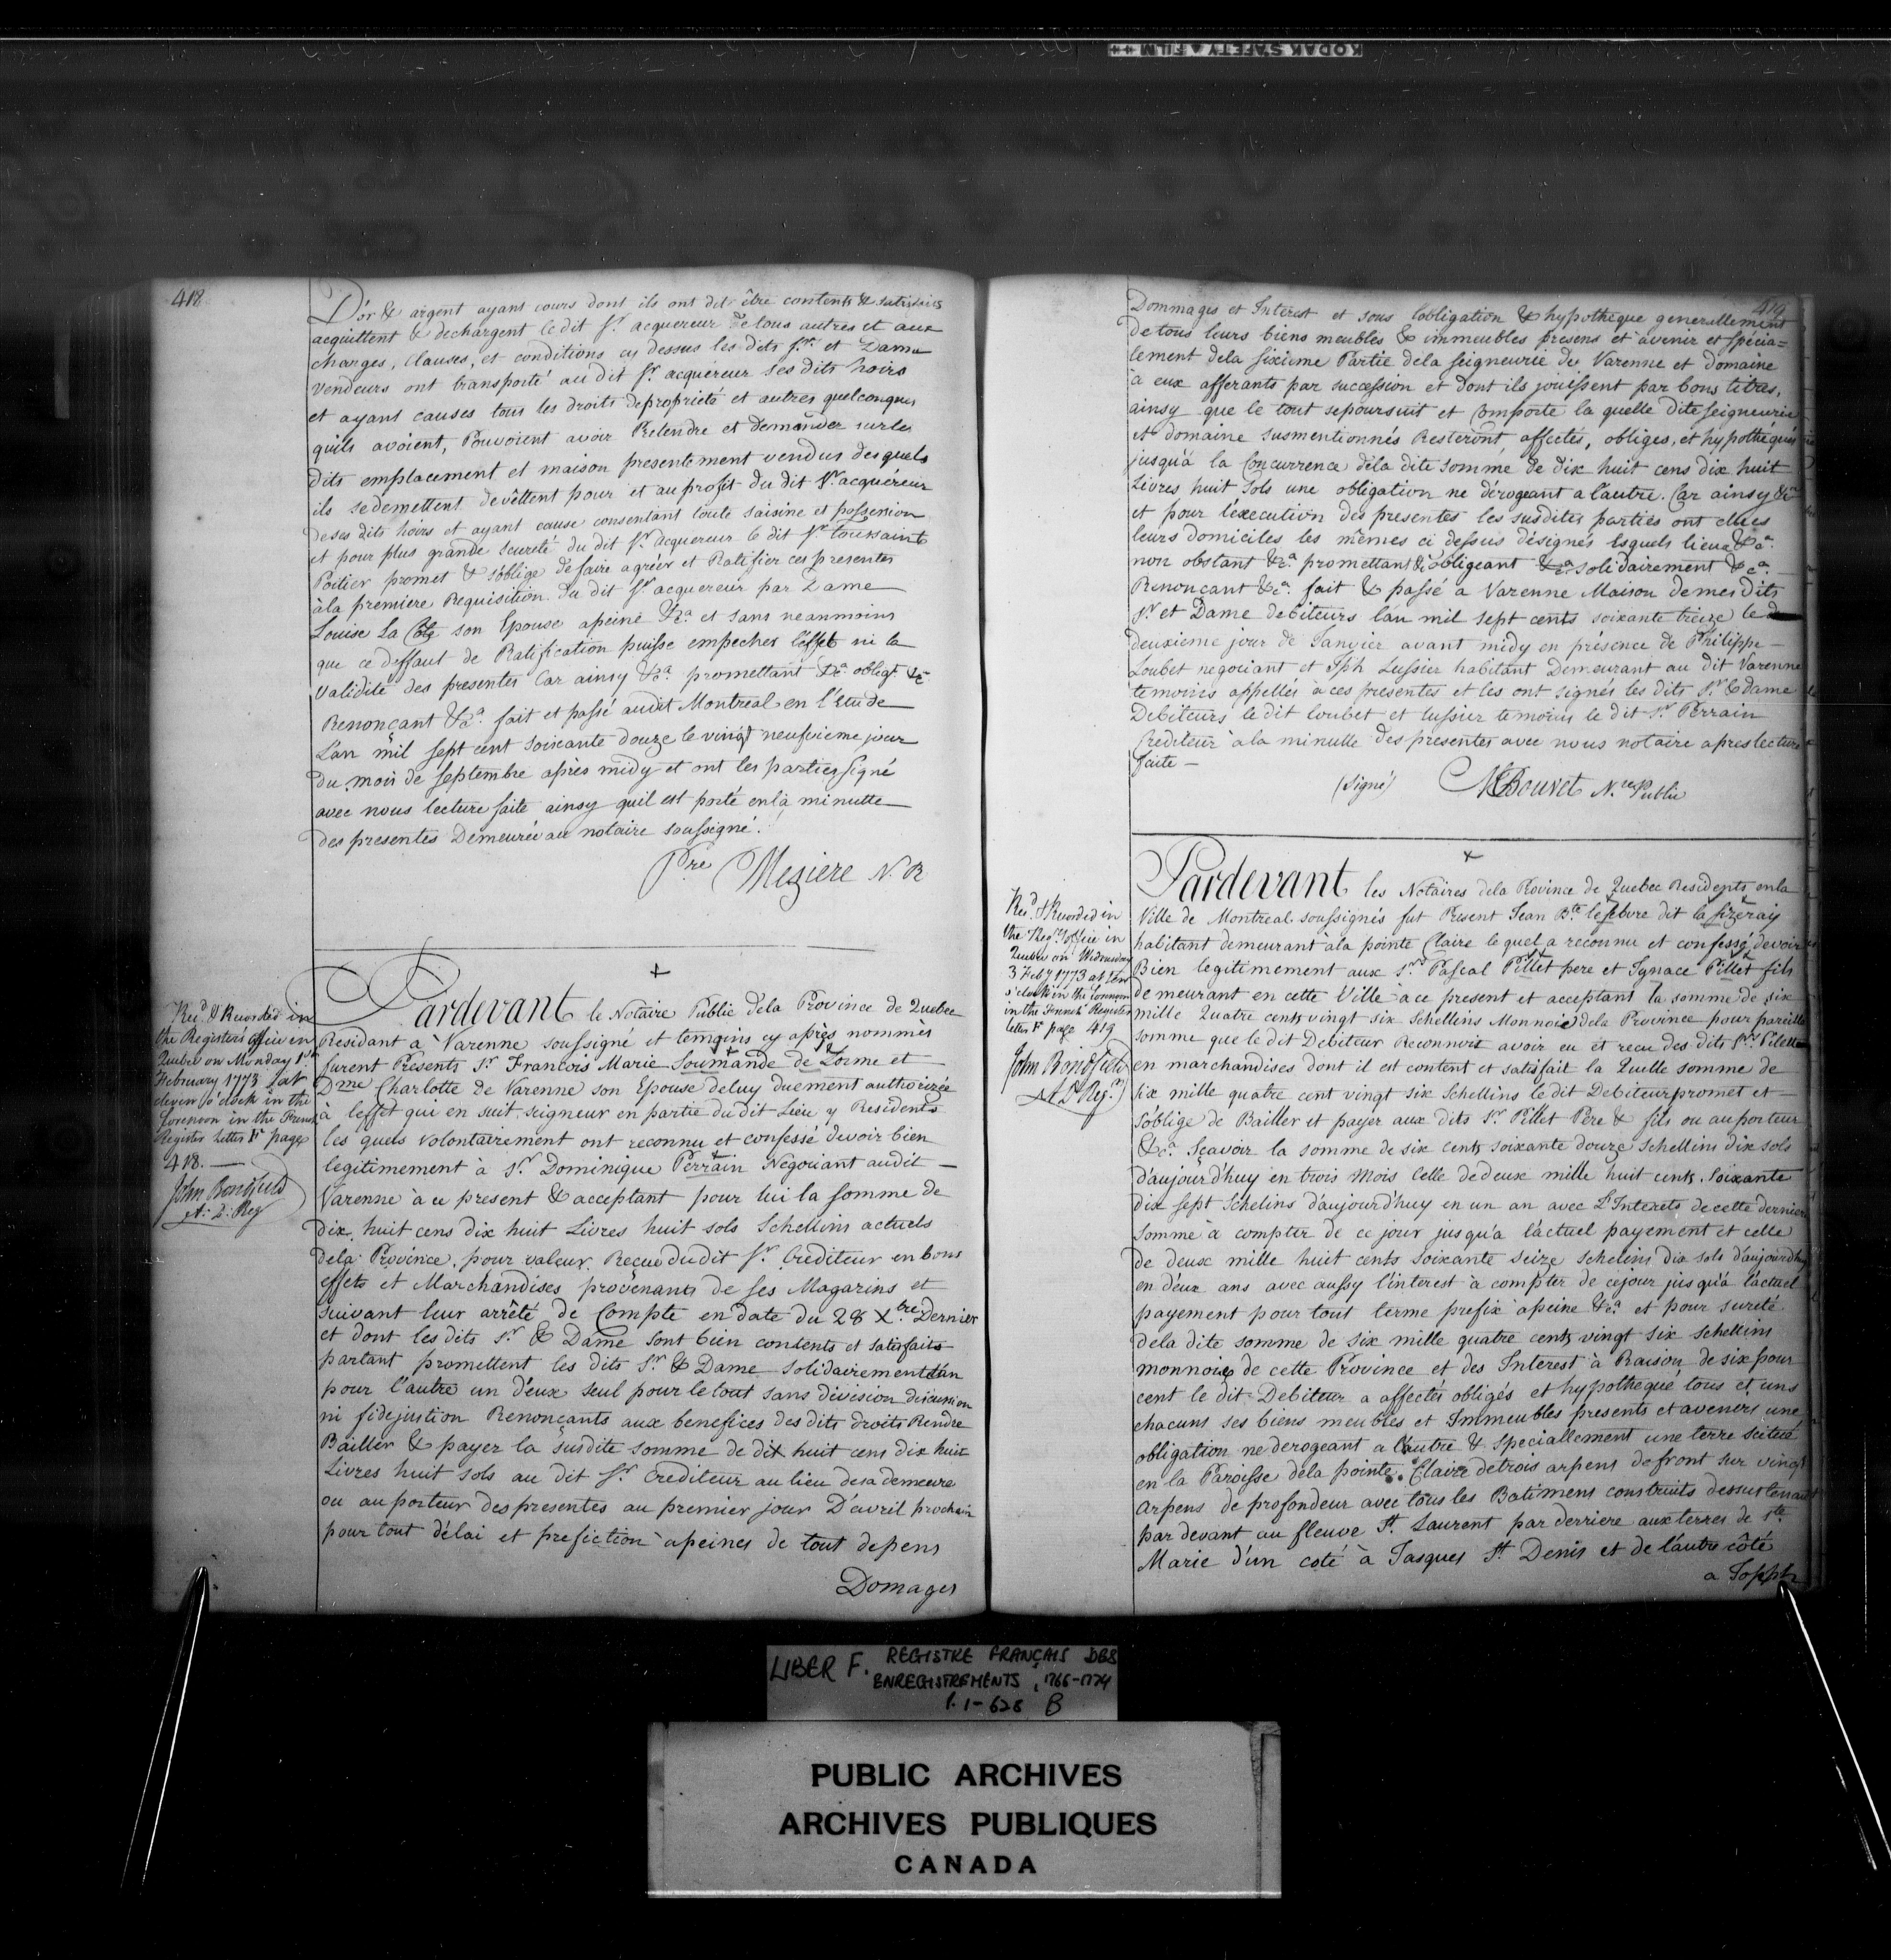 KODAK SAFETY FILM
418
D'or & argent ayant cours dont ils ont dit être contents & satisfaits
acquittent & dechargent le dit Sr. acquereur de tous autres et aux
charges, clauses, et conditions cy dessus les dits Srs. et Dame
vendeurs ont transporté au dit Sr. acquereur ses dits hoirs
et ayant causes tous les droits de proprieté et autres quelconques
quils avoient, Pouvoient avoir Pretendre et demander sur les
dits emplacement et maison presentement vendus desquels
ils se demettent devêttent pour et au profit du dit Sr. acquéreur
de ses dits hoirs et ayant cause consentant toute saisine et possession
et pour plus grande seureté du dit Sr. acquereur le dit Sr. toussaint
Potier promet & s'oblige de faire agréer et Ratifier ces presentes
à la premiere Requisition du dit Sr. acquereur par Dame
Louise La son Epouse apeine &ca. et sans neanmoins
que ce deffaut de Ratification puisse empecher l'effet ni la
validité des presentes Car ainsy &ca. promettant &ca. obligt. &c
Renonçant &ca. fait et passé audit Montreal en l'Etude
L'an mil sept cent soixante douze le vingt neufvieme jour
du mois de septembre après midy et ont les parties signé
avec nous lecture faite ainsy quil est porté en la minutte
des presentes Demeurée au notaire soussigné.
Pre. Meziere N. P.
+
Recd. & Recorded in
the Register's office in
Quebec on Monday 1st
February 1773 at
eleven o'clock in the
forenoon in the French
Register Letter F page
418.
John Bonfield
A: D: Reg
Pardevant le Notaire Public dela Province de Quebec
Residant à Varenne soussigné et temoins cy après nommés
furent Présents Sr. Francois Marie Soumande de Lorme et
Dme Charlotte de Varenne son Epouse deluy duement authorizée
à leffet qui en suit seigneur en partie du dit Lieu y Residents
les quels volontairement ont reconnu et confessé devoir bien
legitimement à Sr. Dominique Perrain Negociant audit
Varenne à ce present & acceptant pour lui la somme de
dix huit cens dix huit Livres huit sols Schellins actuels
dela Province, pour valeur Reçue du dit Sr. Crediteur en bons
effets et Marchandises provenants de ses Magazins et
suivant leur arrêté de Compte en date du 28 Xbre. Dernier
et dont les dits Sr. & Dame sont bien contents et satisfaits
partant promettent les dits Sr. & Dame solidairement l'un
pour l'autre un d'eux seul pour le tout sans division discussion
ni fidejustion Renonçants aux benefices des dits droits Rendre
Bailler & payer la susdite somme de dix huit cens dix huit
Livres huit sols au dit Sr. Crediteur au lieu de sa demeure
ou au porteur des presentes au premier jour D'avril prochain
pour tout délai et prefiction àpeines de tout depens
Domages
419
Dommages et Interest et sous l'obligation & hypotheque generallement
de tous leurs biens meubles & immeubles presens et à venir et spécia=
lement dela sixieme Partie dela seigneurie de Varenne et domaine
à eux afferants par succession et dont ils jouissent par bons titres,
ainsy que le tout se poursuit et Comporte la quelle dite seigneurie
et domaine susmentionnés Resteront affectés, obliges, et hypothéqués
jusqu'à la Concurrence dela dite somme de dix huit cens dix huit
Livres huit Sols une obligation ne dérogeant a l'autre. Car ainsy &ca
et pour l'éxecution des presentes les susdites parties ont elues
leurs domiciles les mêmes ci dessus désignés Esquels lieux &ca.
non obstant &ca. promettant & obligeant &ca. solidairement &ca.
Renonçant &ca. fait & passé à Varenne Maison de mes dits
Sr. et Dame debiteurs l'an mil sept cents soixante treize le
deuxieme jour de Janvier avant midy en présence de Philippe
Loubet negociant et Jph Lussier habitant Demeurant au dit Varenne
temoins appellés à ces presentes et les ont signés les dits Sr. & dame
Debiteurs le dit loubet et lussier temoins le dit Sr. Perrain
Crediteur à la minutte des presentes avec nous notaire apres lecture
faite —
(Signé) Bouvet N.re Public
+
Recd. & Recorded in
the Regr's office in
Quebec on Wednesday
3 Feby 1773 at
o'clock in the
in the French Register
letter F page 419
John Bonfield
A D Reg.
Pardevant les Notaires dela Province de Quebec Residents en la
Ville de Montreal soussignés fut Present Jean Bte. lefebvre dit la Sizeray
habitant demeurant à la pointe Claire le quel a reconnu et confessé devoir
Bien legitimement aux Srs. Pascal Pillet pere et Ignace Pillet fils
demeurant en cette Ville à ce present et acceptant la somme de six
mille Quatre cents vingt six Schellins Monnoie dela Province pour pareille
somme que le dit Debiteur Reconnoit avoir eu et recu des dits Srs. Pilette
en marchandises dont il est content et satisfait la Quelle somme de
six mille quatre cent vingt six Schellins le dit Debiteur promet et
s'oblige de Bailler et payer aux dits Sr. Pillet Pere & fils ou au porteur
&ca. Sçavoir la somme de six cents soixante douze Schellins dix sols
d'aujourd'huy en trois mois Celle de deux mille huit cents soixante
dix sept Schelins d'aujourd'huy en un an avec L'Interets de cette derniere
somme à compter de ce jour jusqu'a l'actuel payement et celle
de deux mille huit cents soixante seize schelins dix sols d'aujourdhuy
en deux ans avec aussy l'interest à compter de cejour jusqu'à l'actuel
payement pour tout terme prefix apeine &ca. et pour sureté
dela dite somme de six mille quatre cents vingt six schellins
monnoie de cette Province et des Interest à Raison de six pour
cent le dit Debiteur a affectés obligés et hypothequé tous et uns
chacuns ses biens meubles et Immeubles presents et avenirs une
obligation ne derogeant a l'autre & speciallement une terre scitué
en la Paroisse dela pointe Claire de trois arpens de front sur vingt
Arpens de profondeur avec tous les Batimens construits dessus tenant
par devant au fleuve St. Laurent par derriere aux terres de Ste.
Marie d'un coté à Jasques St. Denis et de l'autre côté
a Joseph
LIBER F. REGISTRE FRANÇAIS DES
ENREGISTREMENTS, 1766-1774
P. 1-628 B
PUBLIC ARCHIVES
ARCHIVES PUBLIQUES
CANADA